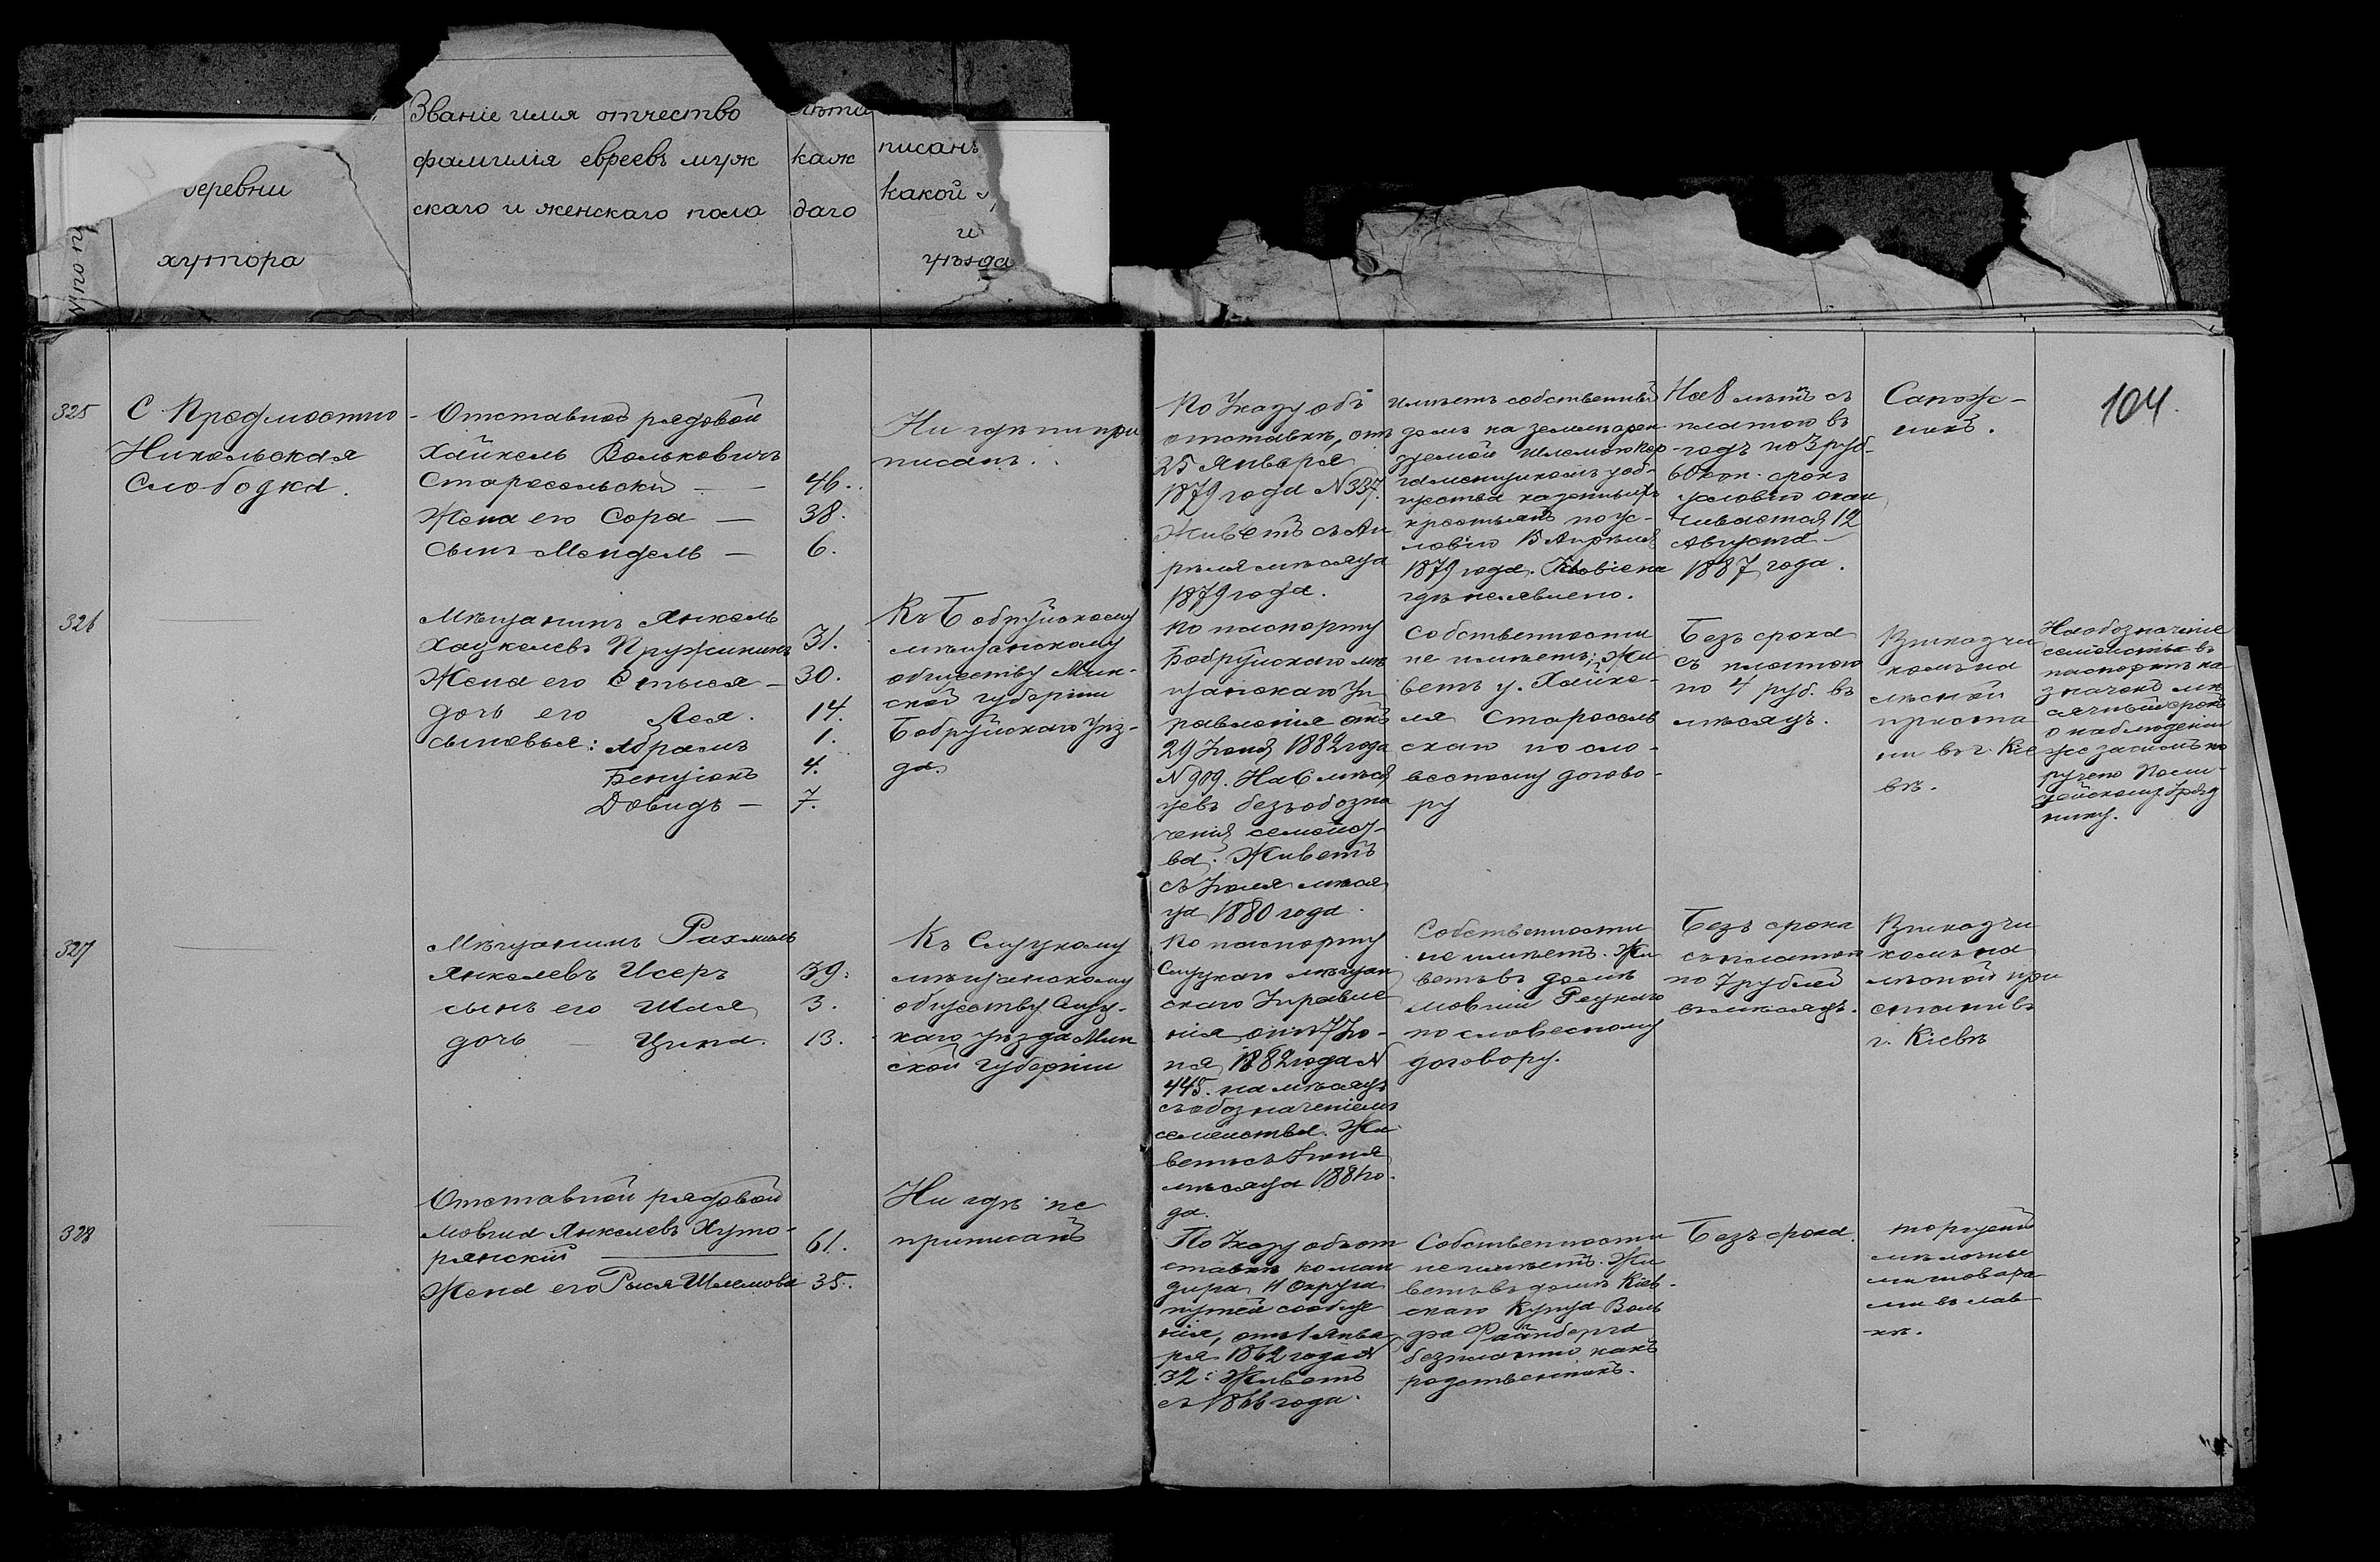 деревни
хутора
Званіе имя отчество
фамилія евреевъ муж
скаго и женскаго пола
лѣта
каж
даго
писанъ
какой
и
уѣзда
104.
325
С. Предмостно-
Никольская
Слободка.
Отставной рядовой
Хайкель Вольковичъ
Старосельскій — — 46.
Жена его Сора — 38.
Сынъ Мендель — 6.
Ни гдѣ ни при
писанъ.
По Указу объ
отставкѣ, отъ
25 Января
1879 года N 337.
Живетъ съ Ап
рѣля мѣсяца
1879 года.
Имѣетъ собственный
домъ на землѣ арен
общества казенныхъ
крестьянъ по ус-
ловію 15 Апрѣля
1879 года.
гдѣ не явлено.
На 8 лѣтъ съ
платою въ
годъ по 3 руб.
60 коп. срокъ
условію окан
чивается 12
Августа
1887 года.
Сапож-
никъ.
326
Мѣщанинъ Янкель
Хацкелевъ Пружининъ 31.
Жена его Стыся — 30.
дочь его Лея. 14.
сыновья: Абрамъ 1.
Бенціонъ 4.
Довидъ — 7.
Къ Бобруйскому
мѣщанскому
обществу Мин-
ской губерніи
Бобруйскаго уѣз-
да.
По паспорту
Бобруйскаго мѣ
щанскаго Уп
равленія отъ
29 Іюня 1882 года
N 909. На 6 мѣся
цевъ безъ обозна
ченія семейст-
ва. Живетъ
съ Іюля мѣся
ца 1880 года.
Собственности
не имѣетъ; Жи
ветъ у Хайке-
ля Старосель
скаго по сло-
весному догово-
ру
Безъ срока
съ платою
по 4 руб. въ
мѣсяцъ.
Приказчи
комъ на
лѣсной
приста
ни въ г. Кіе
вѣ.
На обозначеніе
семейства въ
паспортѣ на
значенъ мѣ
сячный срокъ
о наблюденіи
же за симъ по
ручено Поли-
цейскому Уряд
нику.
327
Мѣщанинъ Рахмиль
Янкелевъ Исеръ 39.
сынъ его Шая 3.
дочь — Ципа. 13.
Къ Слуцкому
мѣщанскому
обществу Слуц-
каго уѣзда Мин
ской губерніи
По паспорту
Слуцкаго мѣщан
скаго Управле
нія отъ 7 Ію-
ня 1882 года N
445. на мѣсяцъ
съ обозначеніемъ
семейства. Жи
ветъ съ Іюня
мѣсяца 1881 го-
да.
Собственности
не имѣетъ. Жи
ветъ въ домѣ
Мовши Рецкаго
по словесному
договору.
Безъ срока
съ платою
по 7 рублей
въ мѣсяцъ.
Приказчи
комъ на
лѣсной при
стани въ
г. Кіевѣ
328
Отставной рядовой
Мовша Янкелевъ Хуто-
рянскій — 61.
Жена его Рыся Шлемова 35.
Ни гдѣ не
приписанъ
По Указу объ от
ставкѣ коман
дира 11 Округа
путей сообще
нія, отъ 1 Янва
ря 1862 года N
32. Живетъ
съ 1866 года.
Собственности
не имѣетъ. Жи
ветъ въ домѣ Кіев-
скаго Купца Воль
фа Файнберга
безплатно какъ
родственникъ.
Безъ срока.
торгуетъ
мѣлочны
ми товара
ми въ лав
кѣ.